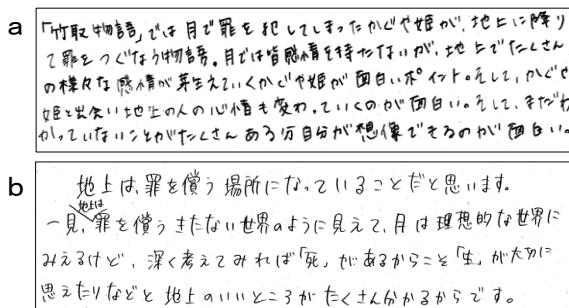 a
「竹取物語」では月で罪を犯してしまったかぐや姫が、地上に降り
て罪をつぐなう物語。月では皆感情を持たないが、地上でたくさん
の様々な感情が芽生えていくかぐや姫が面白いポイント。そして、かぐや
姫と出会い地上の人の心情も変わっていくのが面白い。そして、まだわ
かっていないことがたくさんある分自分が想像できるのが面白い。
b
地上は、罪を償う場所になっていることだと思います。
地上は
一見、罪を償うきたない世界のように見えて、月は理想的な世界に
みえるけど、深く考えてみれば「死」があるからこそ「生」が大切に
思えたりなどと地上のいいところがたくさん分かるからです。